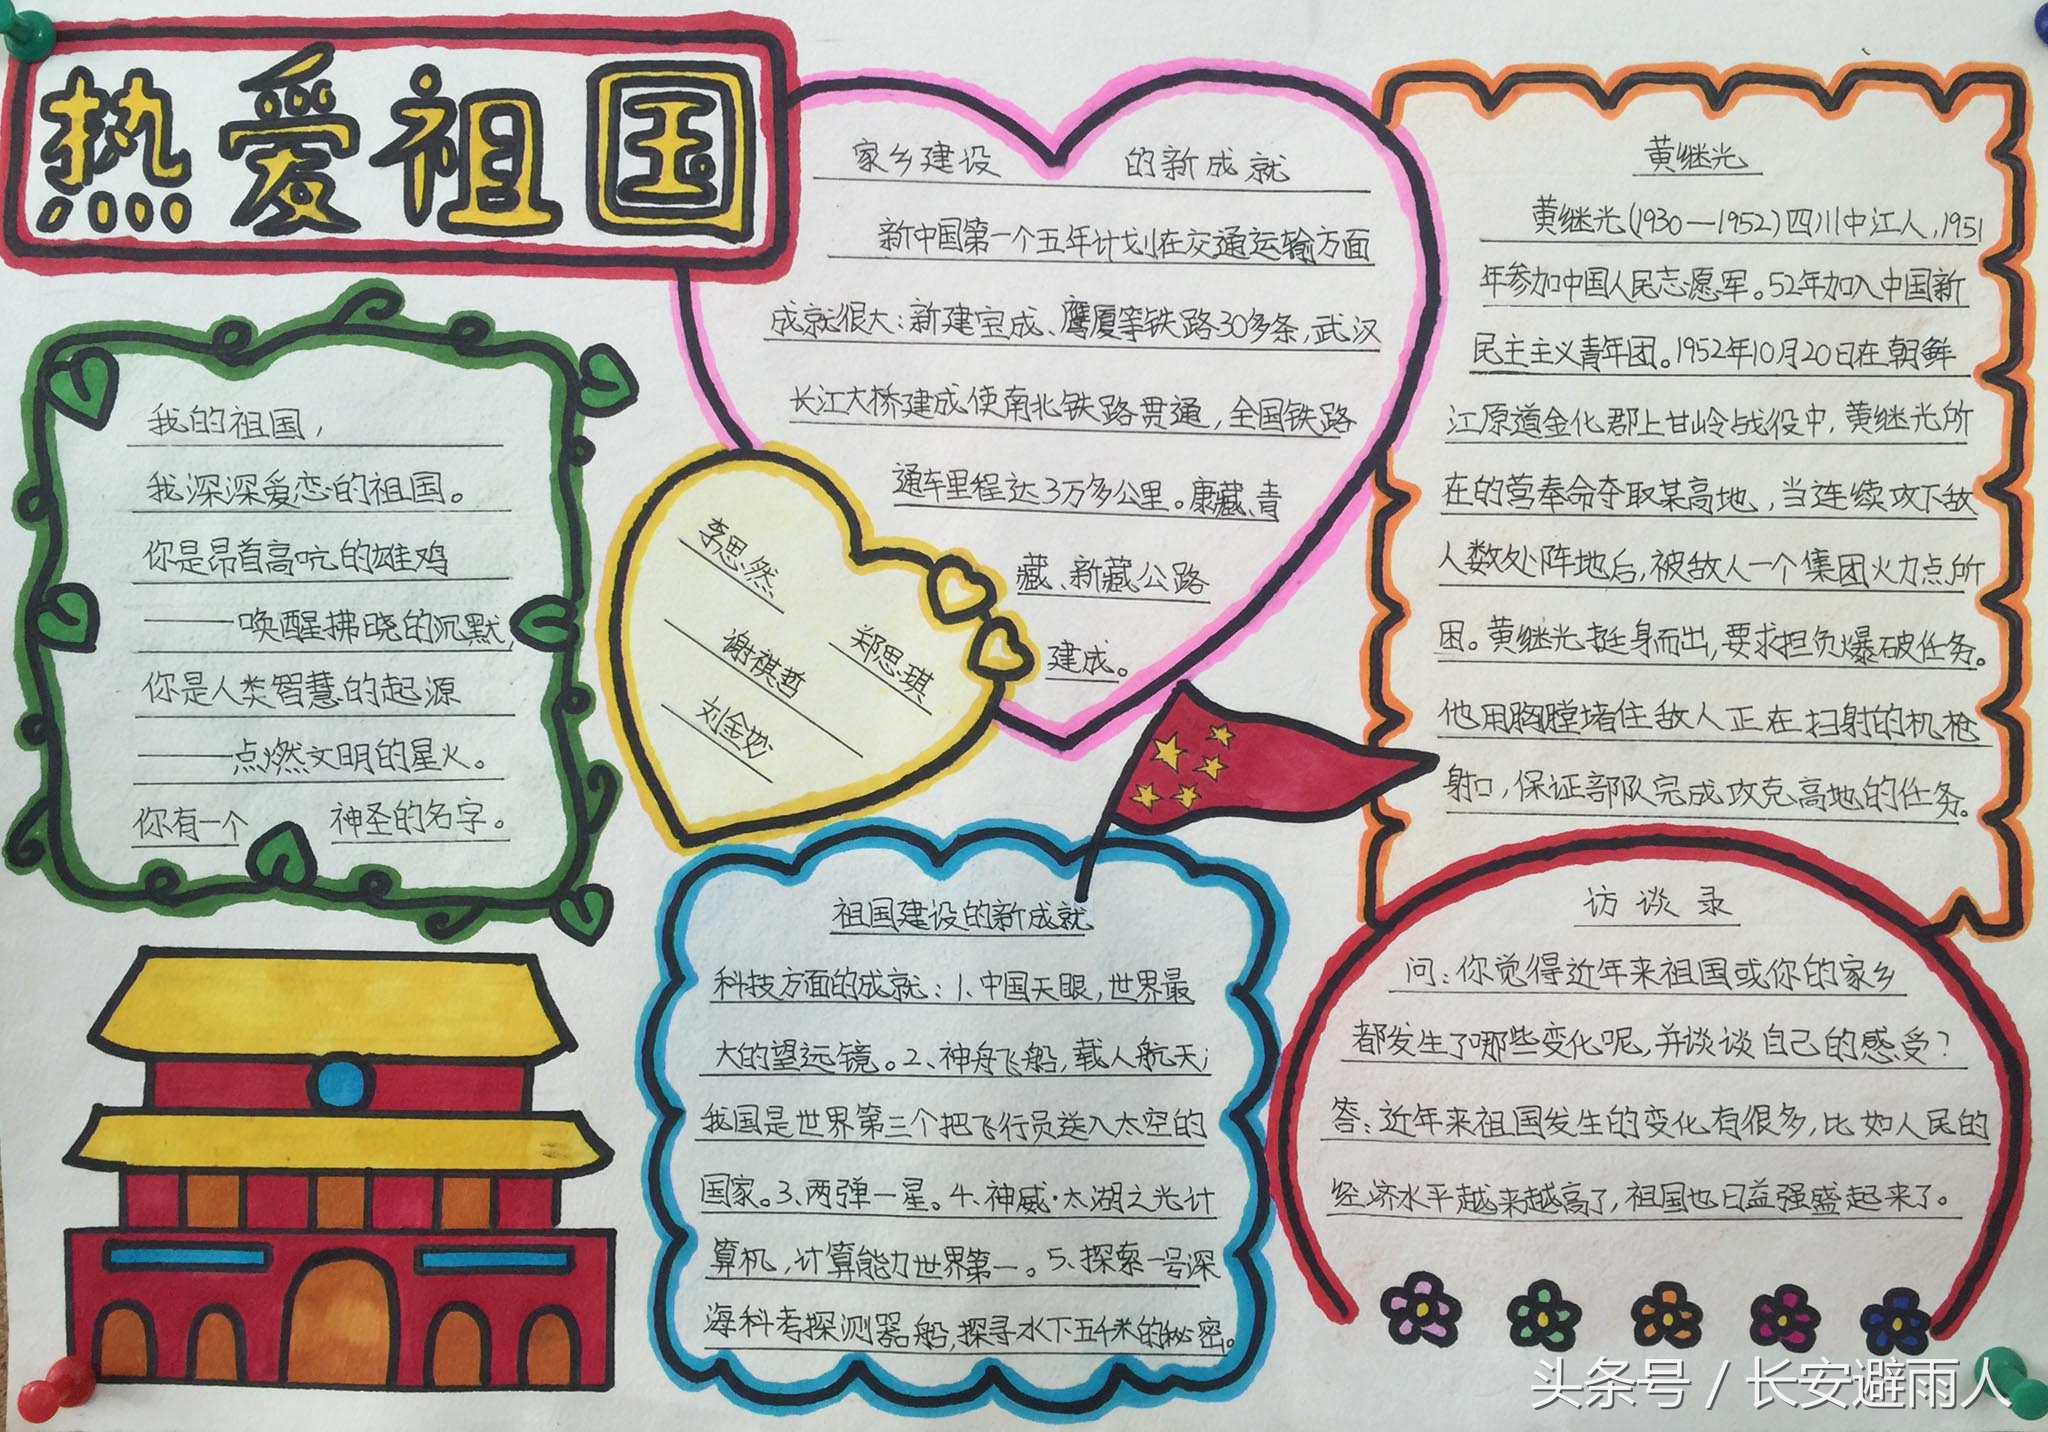 热爱祖国
我的祖国，
我深深爱恋的祖国。
你是昂首高吭的雄鸡
——唤醒拂晓的沉默，
你是人类智慧的起源
——点燃文明的星火。
你有一个 神圣的名字。
家乡建设 的新成就
新中国第一个五年计划在交通运输方面
成就很大：新建宝成、鹰厦等铁路30多条，武汉
长江大桥建成使南北铁路贯通，全国铁路
通车里程达3万多公里。康藏、青
藏、新藏公路
建成。
李思然
谢祺哲
郑思琪
刘金妙
黄继光
黄继光(1930—1952)四川中江人，1951
年参加中国人民志愿军。52年加入中国新
民主主义青年团。1952年10月20日在朝鲜
江原道金化郡上甘岭战役中，黄继光所
在的营奉命夺取某高地，当连续攻下敌
人数处阵地后，被敌人一个集团火力点所
困。黄继光挺身而出，要求担负爆破任务。
他用胸膛堵住敌人正在扫射的机枪
射口，保证部队完成攻克高地的任务。
祖国建设的新成就
科技方面的成就：1、中国天眼，世界最
大的望远镜。2、神舟飞船，载人航天；
我国是世界第三个把飞行员送入太空的
国家。3、两弹一星。4、神威·太湖之光计
算机，计算能力世界第一。5、探索一号深
海科考探测器船，探寻水下五千米的秘密。
访谈录
问：你觉得近年来祖国或你的家乡
都发生了哪些变化呢，并谈谈自己的感受？
答：近年来祖国发生的变化有很多，比如人民的
经济水平越来越高了，祖国也日益强盛起来了。
头条号 / 长安避雨人